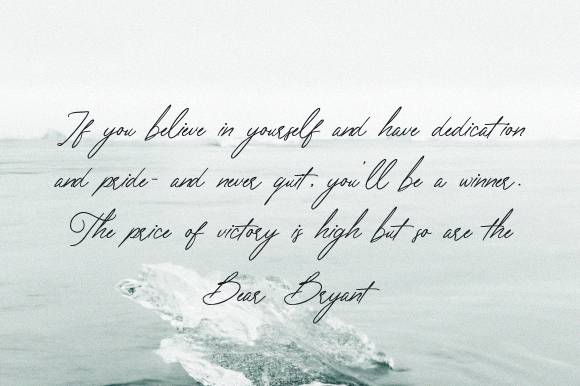 If you believe in yourself and have dedication
and pride- and never quit, you'll be a winner.
The price of victory is high but so are the
Bear Bryant